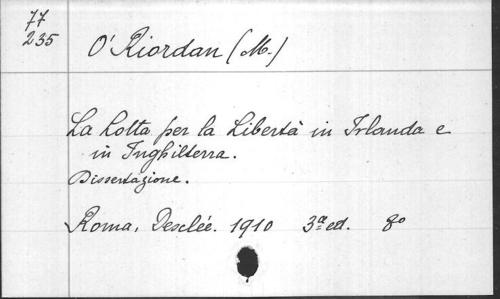 77
235
O'Riordan (M.)
La Lotta per la Libertà in Irlanda e
in Inghilterra.
Dissertazione.
Roma, Desclée. 1910 3ª ed. 8º